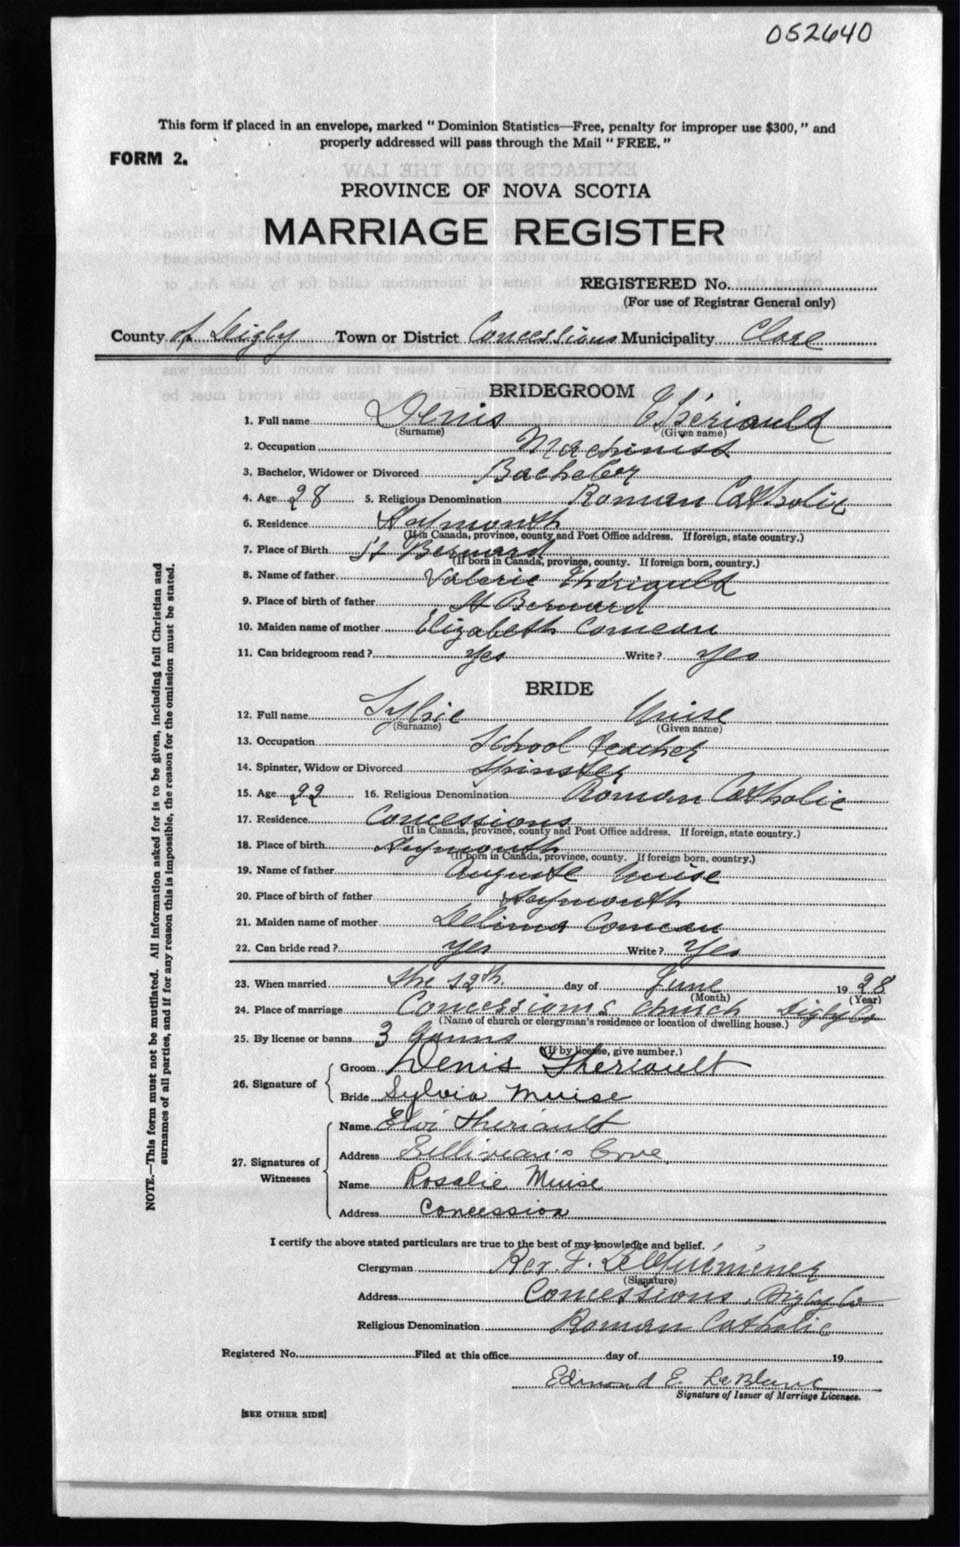 052640
This form if placed in an envelope, marked "Dominion Statistics—Free, penalty for improper use $300," and
properly addressed will pass through the Mail "FREE."
FORM 2.
PROVINCE OF NOVA SCOTIA
MARRIAGE REGISTER
REGISTERED No.
(For use of Registrar General only)
County of Digby Town or District Concessions Municipality Clare
BRIDEGROOM
1. Full name Denis Thériauld
(Surname) (Given name)
2. Occupation Machinist
3. Bachelor, Widower or Divorced Bachelor
4. Age 28 5. Religious Denomination Roman Catholic
6. Residence Weymouth
(If in Canada, province, county and Post Office address. If foreign, state country.)
7. Place of Birth St Bernard
(If born in Canada, province, county. If foreign born, country.)
8. Name of father Valerie Theriauld
9. Place of birth of father St Bernard
10. Maiden name of mother Elizabeth Comeau
11. Can bridegroom read? Yes Write? Yes
BRIDE
12. Full name Sylvie Muise
(Surname) (Given name)
13. Occupation School Teacher
14. Spinster, Widow or Divorced Spinster
15. Age 22 16. Religious Denomination Roman Catholic
17. Residence Concessions
(If in Canada, province, county and Post Office address. If foreign, state country.)
18. Place of birth Weymouth
(If born in Canada, province, county. If foreign born, country.)
19. Name of father Auguste Muise
20. Place of birth of father Weymouth
21. Maiden name of mother Delima Comeau
22. Can bride read? Yes Write? Yes
23. When married the 12th day of June 1928
(Month) (Year)
24. Place of marriage Concessions church Digby Co
(Name of church or clergyman's residence or location of dwelling house.)
25. By license or banns 3 banns
(If by license, give number.)
26. Signature of
Groom Denis Theriault
Bride Sylvia Muise
27. Signatures of Witnesses
Name Elvi Theriault
Address Belliveau's Cove
Name Rosalie Muise
Address Concession
I certify the above stated particulars are true to the best of my knowledge and belief.
Clergyman Rev. F.
(Signature)
Address Concessions, Digby Co
Religious Denomination Roman Catholic
Registered No. Filed at this office day of 19
Edmond E. LeBlanc
Signature of Issuer of Marriage Licenses.
[SEE OTHER SIDE]
NOTE.—This form must not be mutilated. All information asked for is to be given, including full Christian and
surnames of all parties, and if for any reason this is impossible, the reason for the omission must be stated.